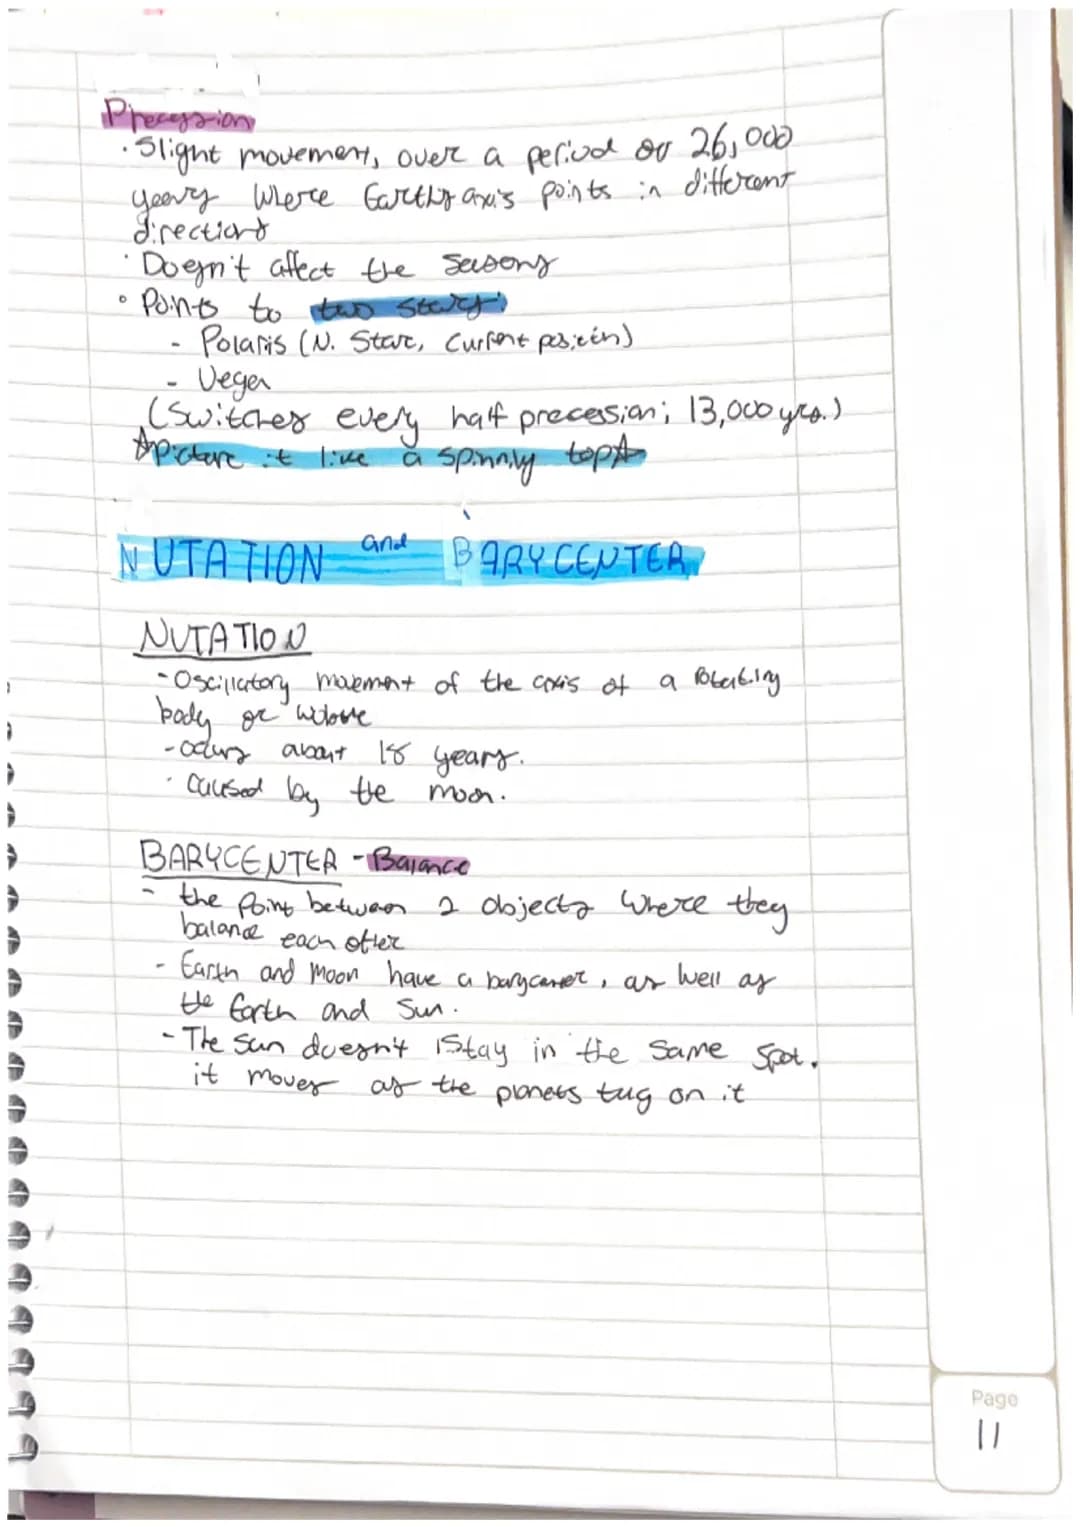 Precession
· Slight movement, over a period of 26,000
years where Earth's axis points in different
directions
· Doesn't affect the seasons
• Points to two stars:
- Polaris (N. Star, current position)
- Vega
(Switches every half precession; 13,000 yrs.)
☆picture it like a spinnly top☆
NUTATION and BARYCENTER
NUTATION
- Oscillatory movement of the axis of a rotating
body or wobble
- occurs about 18 years.
· Caused by the moon.
BARYCENTER - Balance
- the point between 2 objects where they
balance each other
- Earth and Moon have a barycenter, as well as
the Earth and Sun.
- The Sun doesn't stay in the same spot.
it moves as the planets tug on it
Page
11